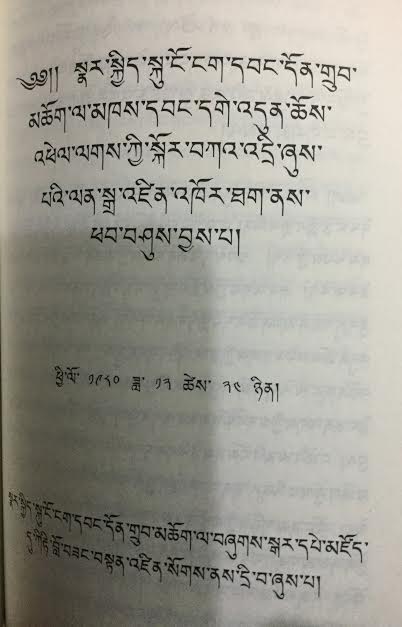 ༄༅།། སྣར་སྐྱིད་སྐུ་ངོ་ངག་དབང་དོན་གྲུབ་
མཆོག་ལ་མཁས་དབང་དགེ་འདུན་ཆོས་
འཕེལ་ལགས་ཀྱི་སྐོར་བཀའ་འདྲི་ཞུས་
པའི་ལན་སྒྲ་འཛིན་འཁོར་ཐག་ནས་
ཕབ་བཤུས་བྱས་པ།
ཕྱི་ལོ་ ༡༩༨༠ ཟླ་ ༡༢ ཚེས་ ༢༤ ཉིན།
སྣར་སྐྱིད་སྐུ་ངོ་ངག་དབང་དོན་གྲུབ་མཆོག་ལ་བཞུགས་སྒར་དཔེ་མཛོད་
བློ་བཟང་བསྟན་འཛིན་སོགས་ནས་དྲི་བ་ཞུས་པ།